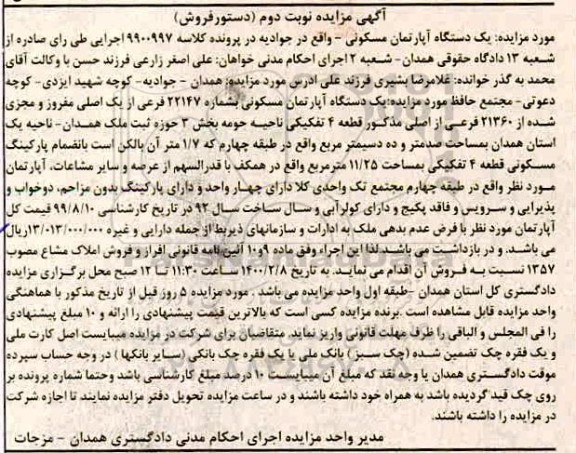 آگهی مزایده نوبت دوم (دستورفروش)
مورد مزایده: یک دستگاه آپارتمان مسکونی - واقع در جوادیه در پرونده کلاسه ۹۹۰۰۹۹۷ اجرایی طی رای صادره از
شعبه ۱۳ دادگاه حقوقی همدان- شعبه ۲ اجرای احکام مدنی خواهان: علی اصغر زارعی فرزند حسن با وکالت آقای
محمد به گذر خوانده: غلامرضا بشیری فرزند علی آدرس مورد مزایده: همدان - جوادیه- کوچه شهید ایزدی - کوچه
دعوتی - مجتمع حافظ مورد مزایده:یک دستگاه آپارتمان مسکونی بشماره ۲۲۱۴۷ فرعی از یک اصلی مفروز و مجزی
شده از ۲۱۳۶۰ فرعی از اصلی مذکور قطعه ۴ تفکیکی ناحیه حومه بخش ۳ حوزه ثبت ملک همدان- ناحیه یک
استان همدان بمساحت صدمتر و ده دسیمتر مربع واقع در طبقه چهارم که ۱/۷ متر آن بالکن است بانضمام پارکینگ
مسکونی قطعه ۴ تفکیکی بمساحت ۱۱/۲۵ مترمربع واقع در همکف با قدرالسهم از عرصه و سایر مشاعات، آپارتمان
مورد نظر واقع در طبقه چهارم مجتمع تک واحدی کلا دارای چهار واحد و دارای پارکینگ بدون مزاحم، دوخواب و
پذیرایی و سرویس و فاقد پکیج و دارای کولرآبی و سال ساخت سال ۹۲ در تاریخ کارشناسی ۹۹/۸/۱۰ قیمت کل
آپارتمان مورد نظر با فرض عدم بدهی ملک به ادارات و سازمانهای ذیربط از جمله دارایی و غیره ۱۳/۰۱۳/۰۰۰/۰۰۰ریال
می باشد. و در بازداشت می باشد.لذا این اجراء وفق ماده ۹و۱۰ آئین نامه قانونی افراز و فروش املاک مشاع مصوب
۱۳۵۷ نسبت به فروش آن اقدام می نماید. به تاریخ ۱۴۰۰/۲/۸ ساعت ۱۱:۳۰ تا ۱۲ صبح محل برگزاری مزایده
دادگستری کل استان همدان -طبقه اول واحد مزایده می باشد . مورد مزایده ۵ روز قبل از تاریخ مذکور با هماهنگی
واحد مزایده قابل مشاهده است .برنده مزایده کسی است که بالاترین قیمت پیشنهادی را ارائه و ۱۰ مبلغ پیشنهادی
را فی المجلس و الباقی را ظرف مهلت قانونی واریز نماید. متقاضیان برای شرکت در مزایده میبایست اصل کارت ملی
و یک فقره چک تضمین شده (چک سبز) بانک ملی یا یک فقره چک بانکی (سایر بانکها) در وجه حساب سپرده
موقت دادگستری همدان یا وجه نقد که مبلغ آن میبایست ۱۰ درصد مبلغ کارشناسی باشد وحتما شماره پرونده بر
روی چک قید گردیده باشد به همراه خود داشته باشند و در ساعت مزایده تحویل دفتر مزایده نمایند تا اجازه شرکت
در مزایده را داشته باشند.
مدیر واحد مزایده اجرای احکام مدنی دادگستری همدان - مزجات